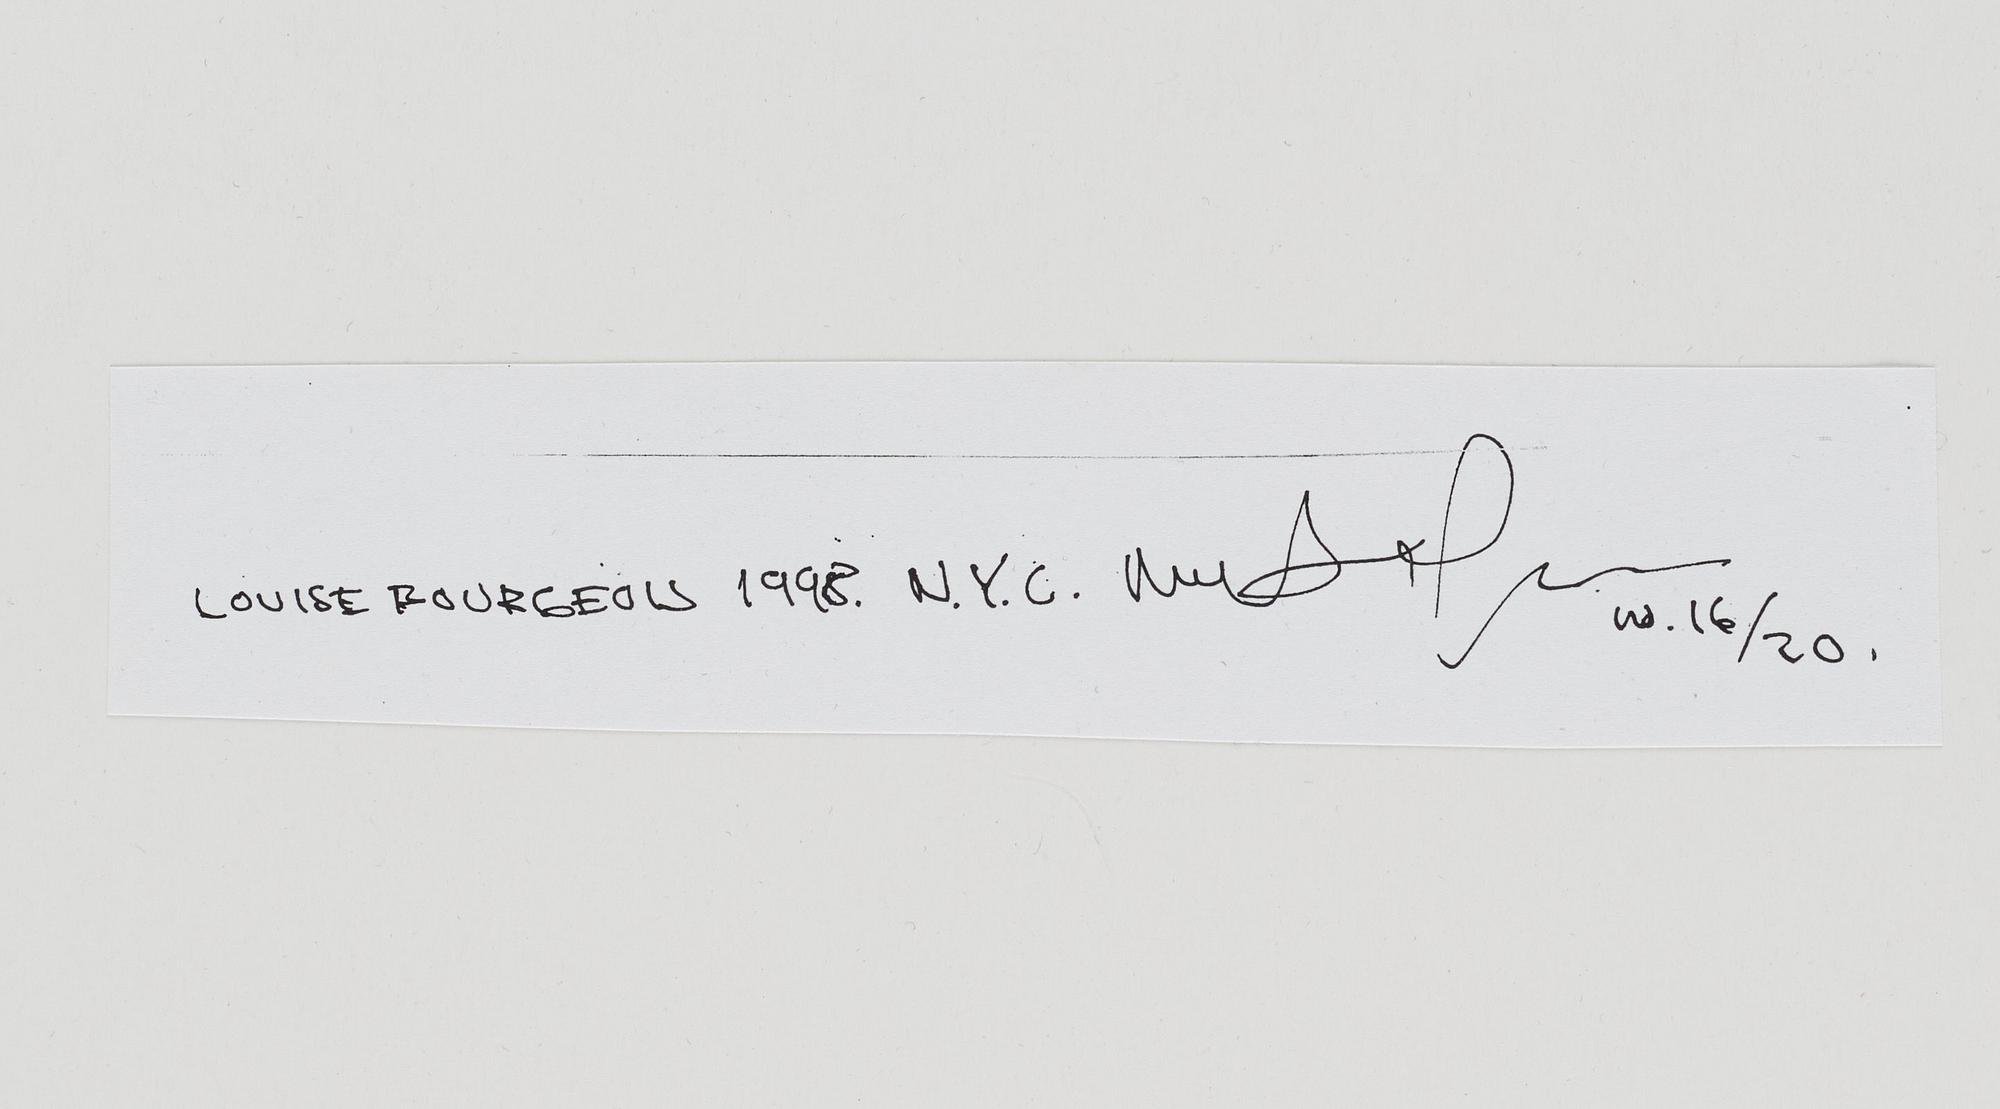 LOUISE BOURGEOIS 1998. N.Y.C.
no. 16/20.